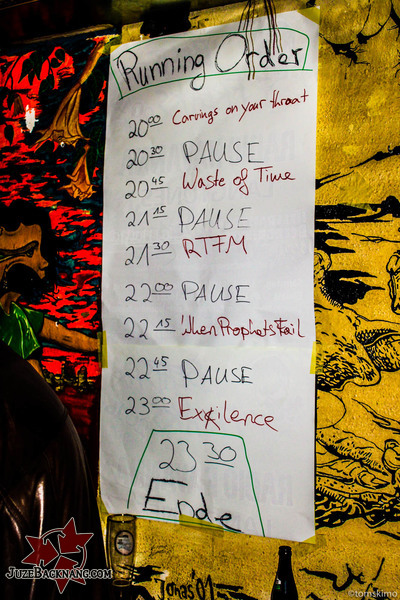 Running Order
20⁰⁰ Carvings on your throat
20³⁰ PAUSE
20⁴⁵ Waste of Time
21¹⁵ PAUSE
21³⁰ RTFM
22⁰⁰ PAUSE
22¹⁵ When Prophets Fail
22⁴⁵ PAUSE
23⁰⁰ Exxilence
23³⁰
Ende
JUZEBACKNANG.COM
Jonas'01
©tomskimo